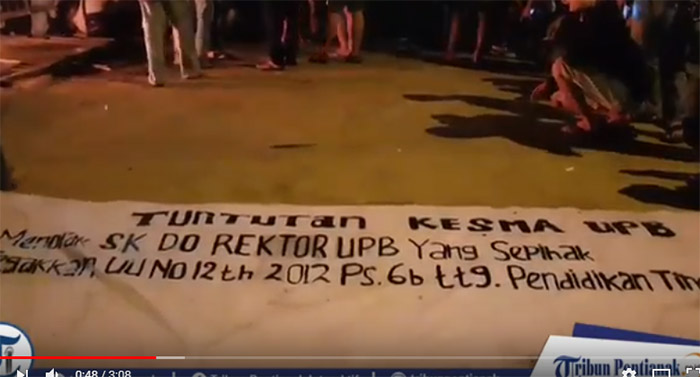 TUNTUTAN KESMA UPB
Menolak SK DO REKTOR UPB Yang Sepihak
egakkan UU NO 12 th 2012 Ps. 6b ttg. Pendidikan Tin
Tribun Pontianak
0:48 / 3:08